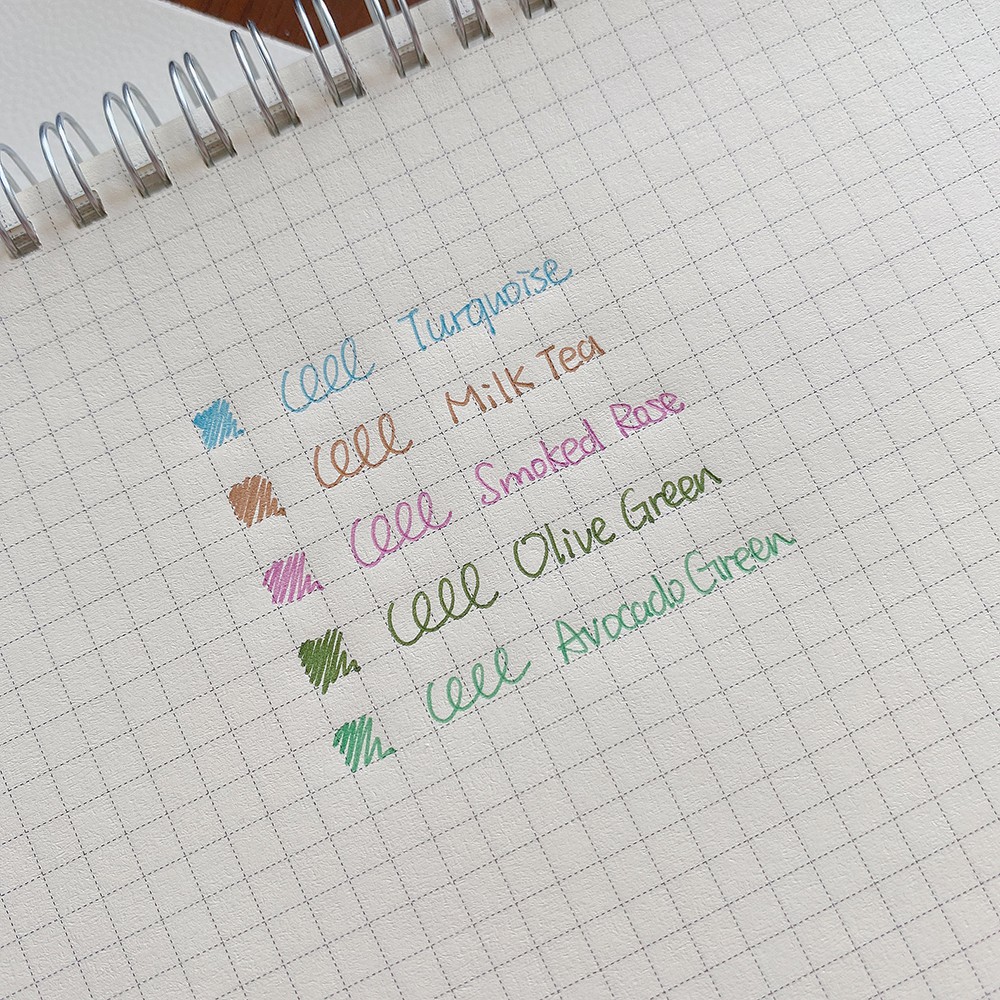 Turquoise
Milk Tea
Smoked Rose
Olive Green
Avocado Green